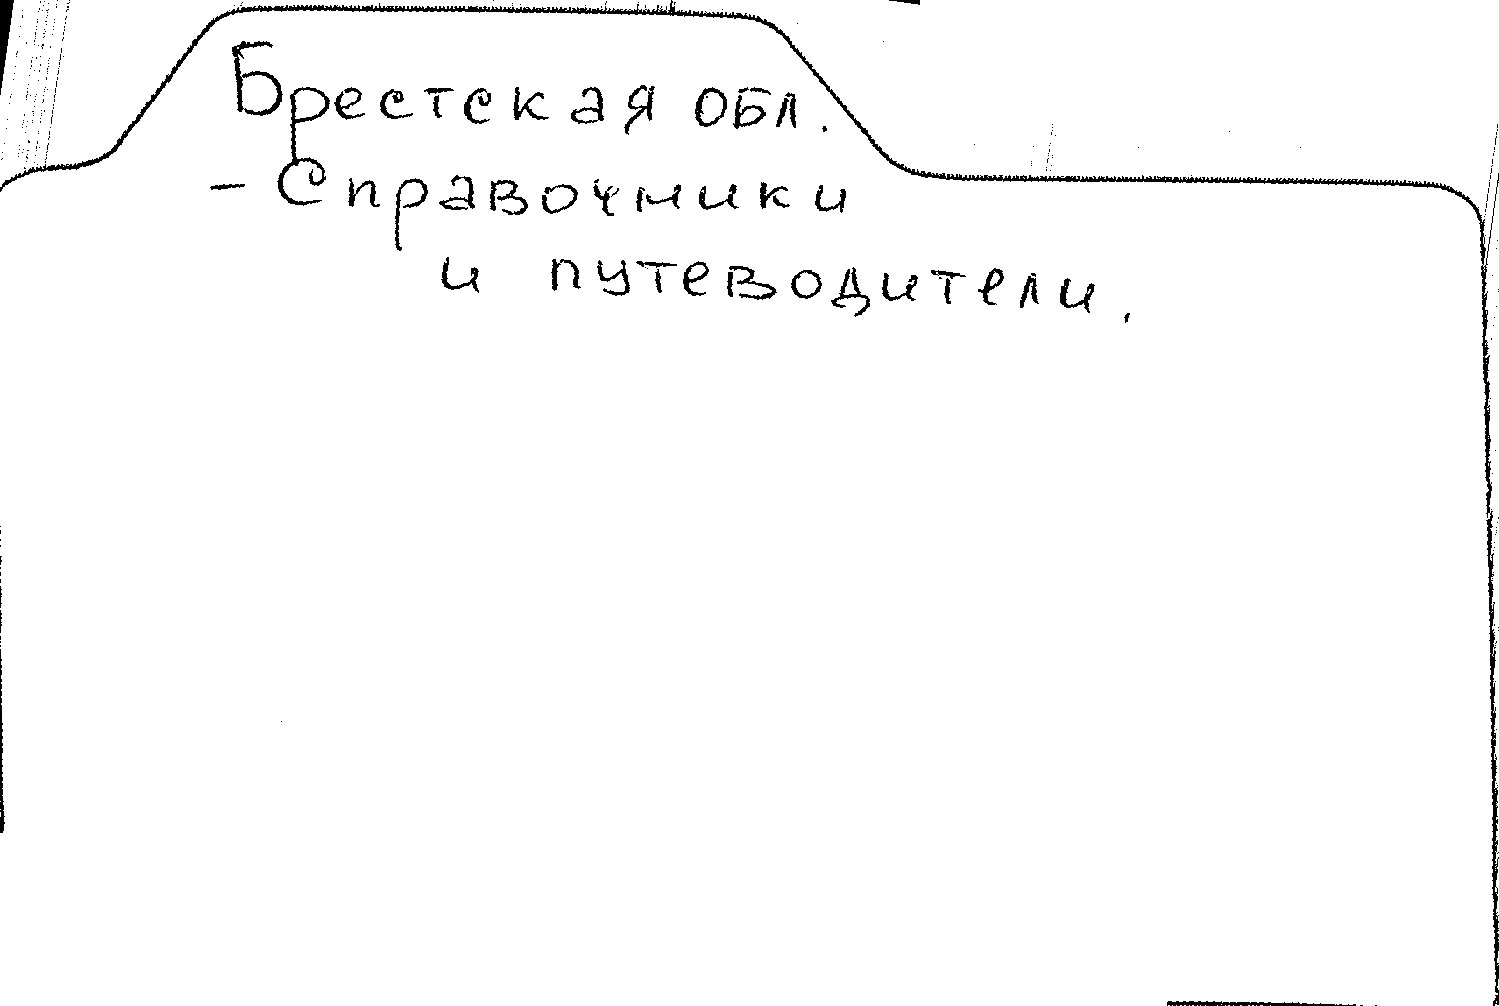 Брестская обл.
- Справочники
и путеводители.